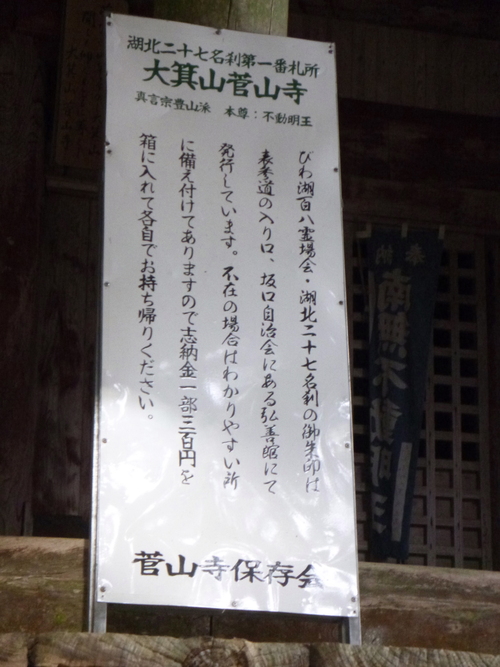 湖北二十七名刹第一番札所
大箕山菅山寺
真言宗豊山派 本尊：不動明王
びわ湖百八霊場会・湖北二十七名刹の御朱印は
表参道の入り口、坂口自治会にある弘善館にて
発行しています。不在の場合はわかりやすい所
に備え付けてありますので志納金一部三百円を
箱に入れて各自でお持ち帰りください。
菅山寺保存会
奉納
南無不動明王